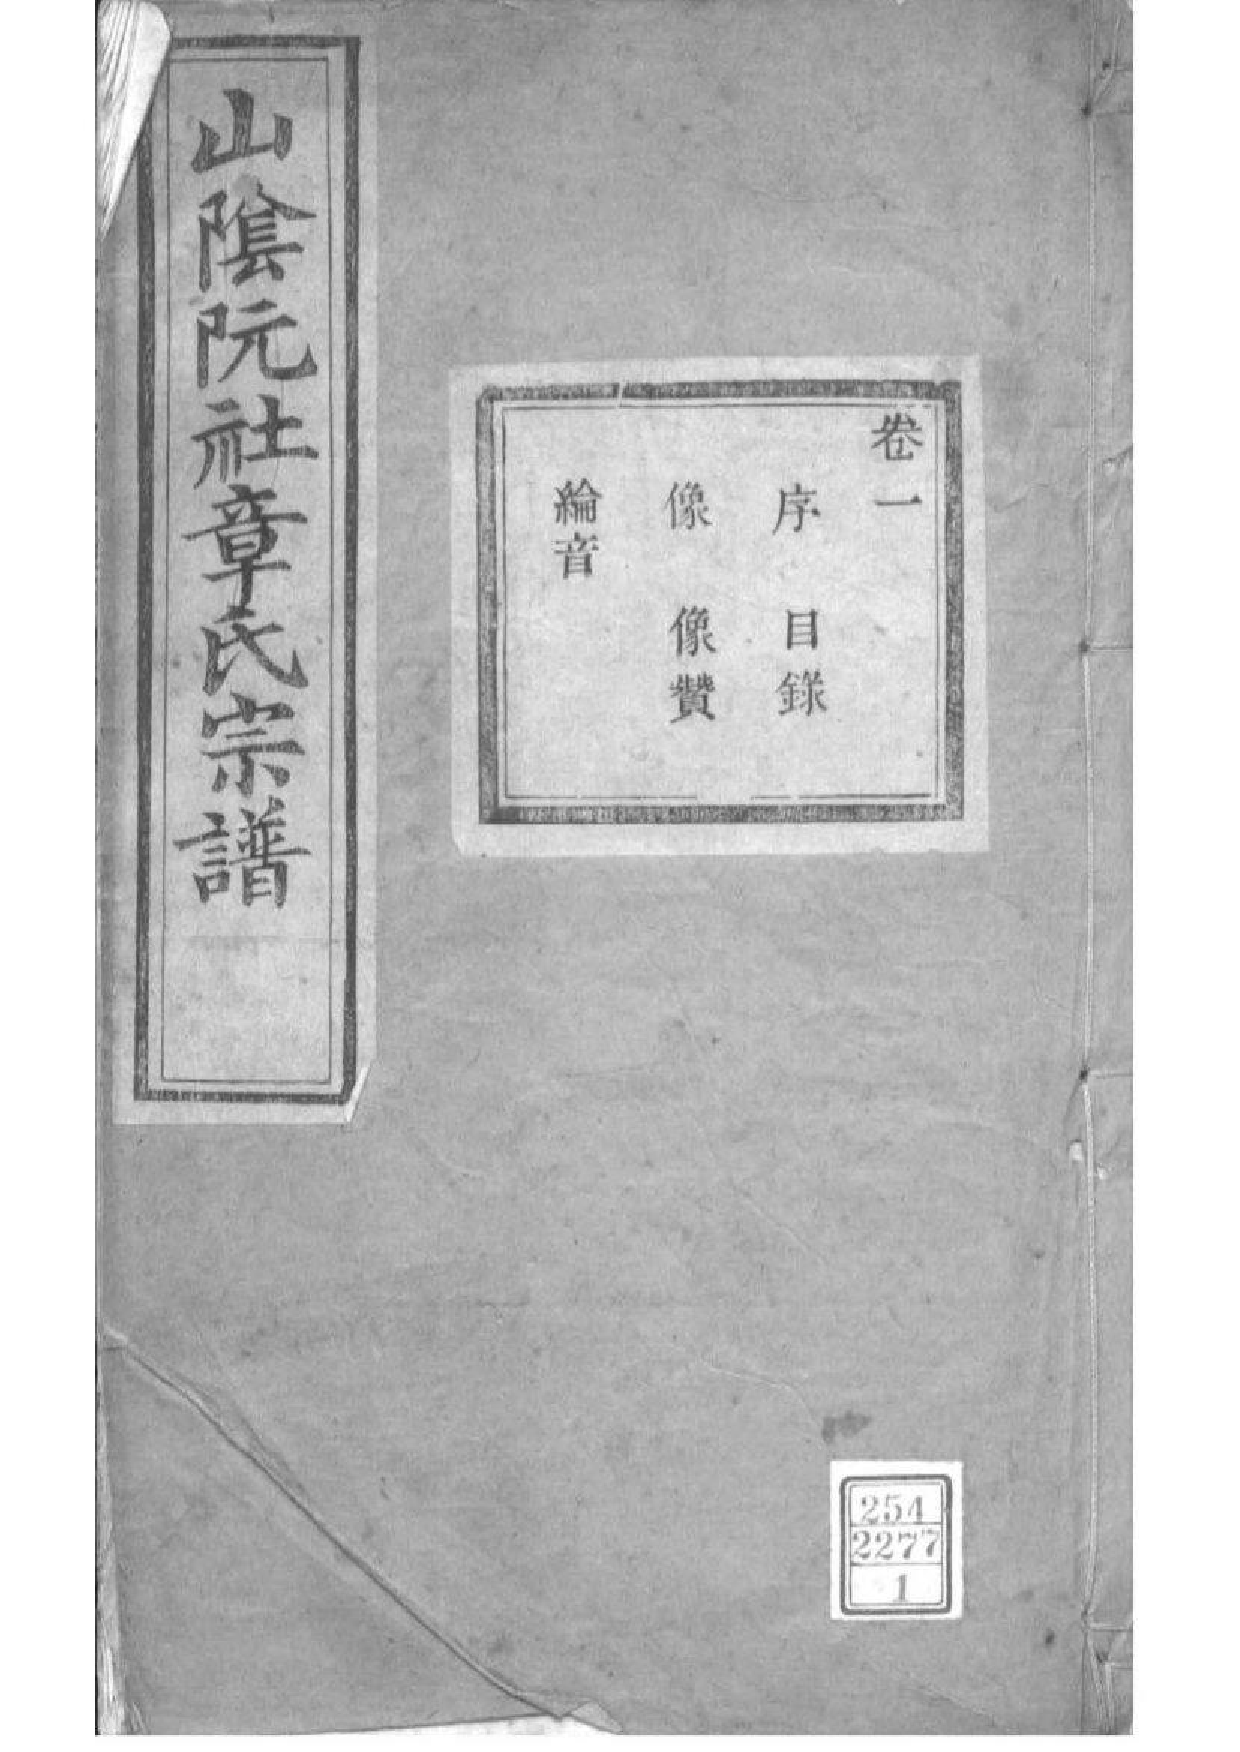 山陰阮社章氏宗譜
卷一
序 目錄
像 像贊
綸音
254
2277
1